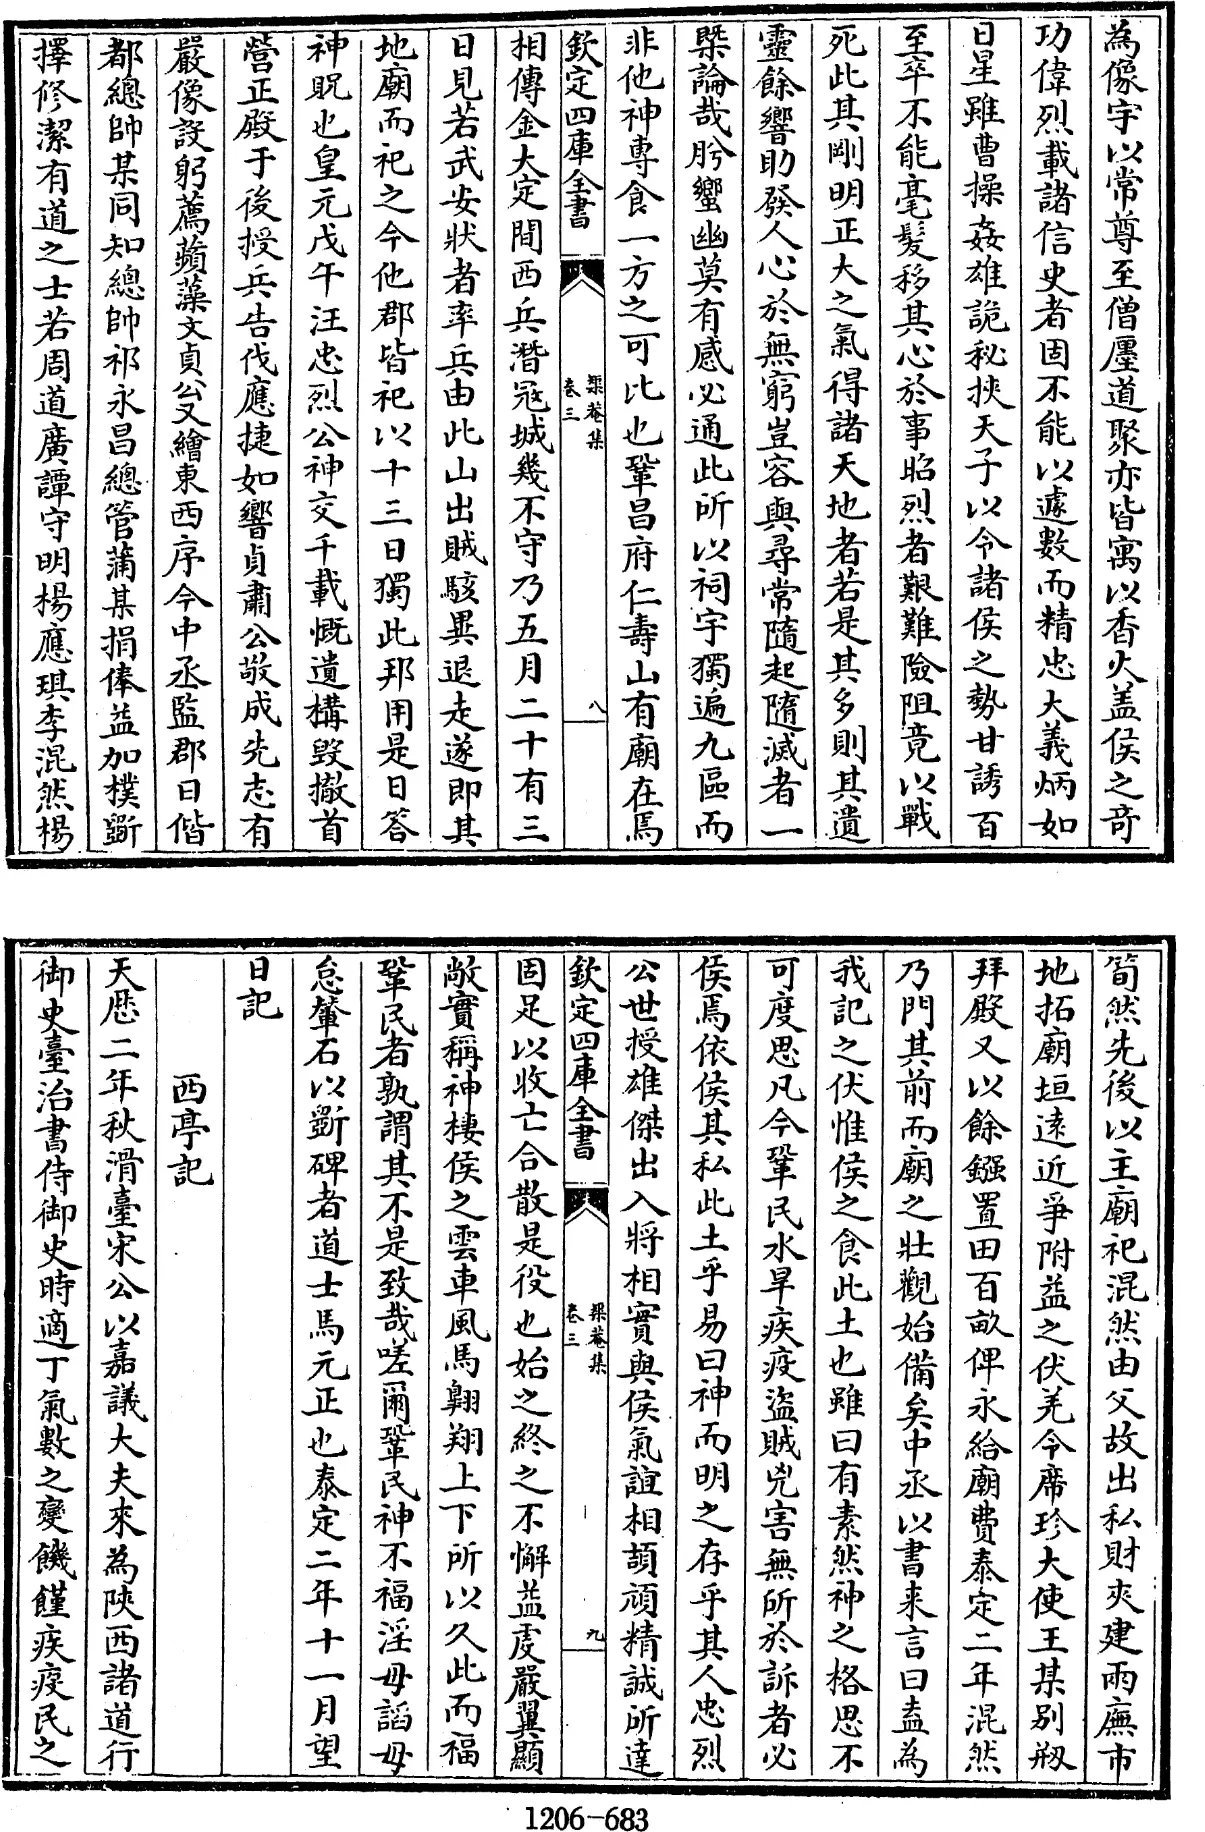 為像宇以常尊至僧廛道聚亦皆寓以香火盖侯之竒
功偉烈載諸信史者固不能以遽數而精忠大義炳如
日星雖曹操姦雄詭秘挾天子以令諸侯之勢甘誘百
至卒不能毫髪移其心於事昭烈者艱難險阻竟以戰
死此其剛明正大之氣得諸天地者若是其多則其遺
靈餘響助發人心於無窮豈容與尋常隨起隨滅者一
槩論哉肹蠁幽莫有感必通此所以祠宇獨遍九區而
非他神專食一方之可比也鞏昌府仁壽山有廟在焉
欽定四庫全書
榘菴集
卷三
八
相傳金大定間西兵潛冦城幾不守乃五月二十有三
日見若武安狀者率兵由此山出賊駭異退走遂即其
地廟而祀之今他郡皆祀以十三日獨此邦用是日答
神貺也皇元戊午汪忠烈公神交千載慨遺構毁撤首
營正殿于後授兵告伐應捷如響貞肅公敬成先志有
嚴像設躬薦蘋藻文貞公又繪東西序今中丞監郡日偕
都總帥某同知總帥祁永昌總管蒲某捐俸益加樸斵
擇修潔有道之士若周道廣譚守明楊應琪李混然楊
筍然先後以主廟祀混然由父故出私財夾建兩廡市
地拓廟垣遠近爭附益之伏羌令席珍大使王某别剏
拜殿又以餘鏹置田百畝俾永給廟費泰定二年混然
乃門其前而廟之壯觀始備矣中丞以書来言曰盍為
我記之伏惟侯之食此土也雖曰有素然神之格思不
可度思凡今鞏民水旱疾疫盜賊兇害無所於訴者必
侯焉依侯其私此土乎易曰神而明之存乎其人忠烈
公世授雄傑出入將相實與侯氣誼相頡頏精誠所達
欽定四庫全書
榘菴集
卷三
九
固足以收亡合散是役也始之終之不懈益虔嚴翼顯
敞實稱神棲侯之雲車風馬翺翔上下所以久此而福
鞏民者孰謂其不是致哉嗟爾鞏民神不福淫毋謟毋
怠輦石以斵碑者道士馬元正也泰定二年十一月望
日記
西亭記
天厯二年秋滑臺宋公以嘉議大夫來為陜西諸道行
御史臺治書侍御史時適丁氣數之變饑饉疾疫民之
1206-683